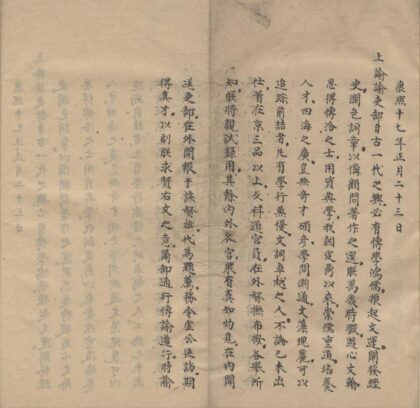 康熙十七年正月二十三日
上諭諭吏部自古一代之興必有博學鴻儒振起文運闡發經
史潤色詞章以備顧問著作之選朕萬幾時暇遊心文翰
思得博洽之士用資典學我朝定鼎以來崇儒重道培養
人才四海之廣豈無奇才碩彥學問淵通文藻瑰麗可以
追踪前喆者凡有學行兼優文詞卓越之人不論已未出
仕著在京三品以上及科道官員在外督撫布按各舉所
知朕將親試錄用其餘內外各官果有真知灼見在內開
送吏部在外開報于該督撫代為題薦務令虛公延訪期
得真才以副朕求賢右文之意爾部通行傳諭遵行特諭